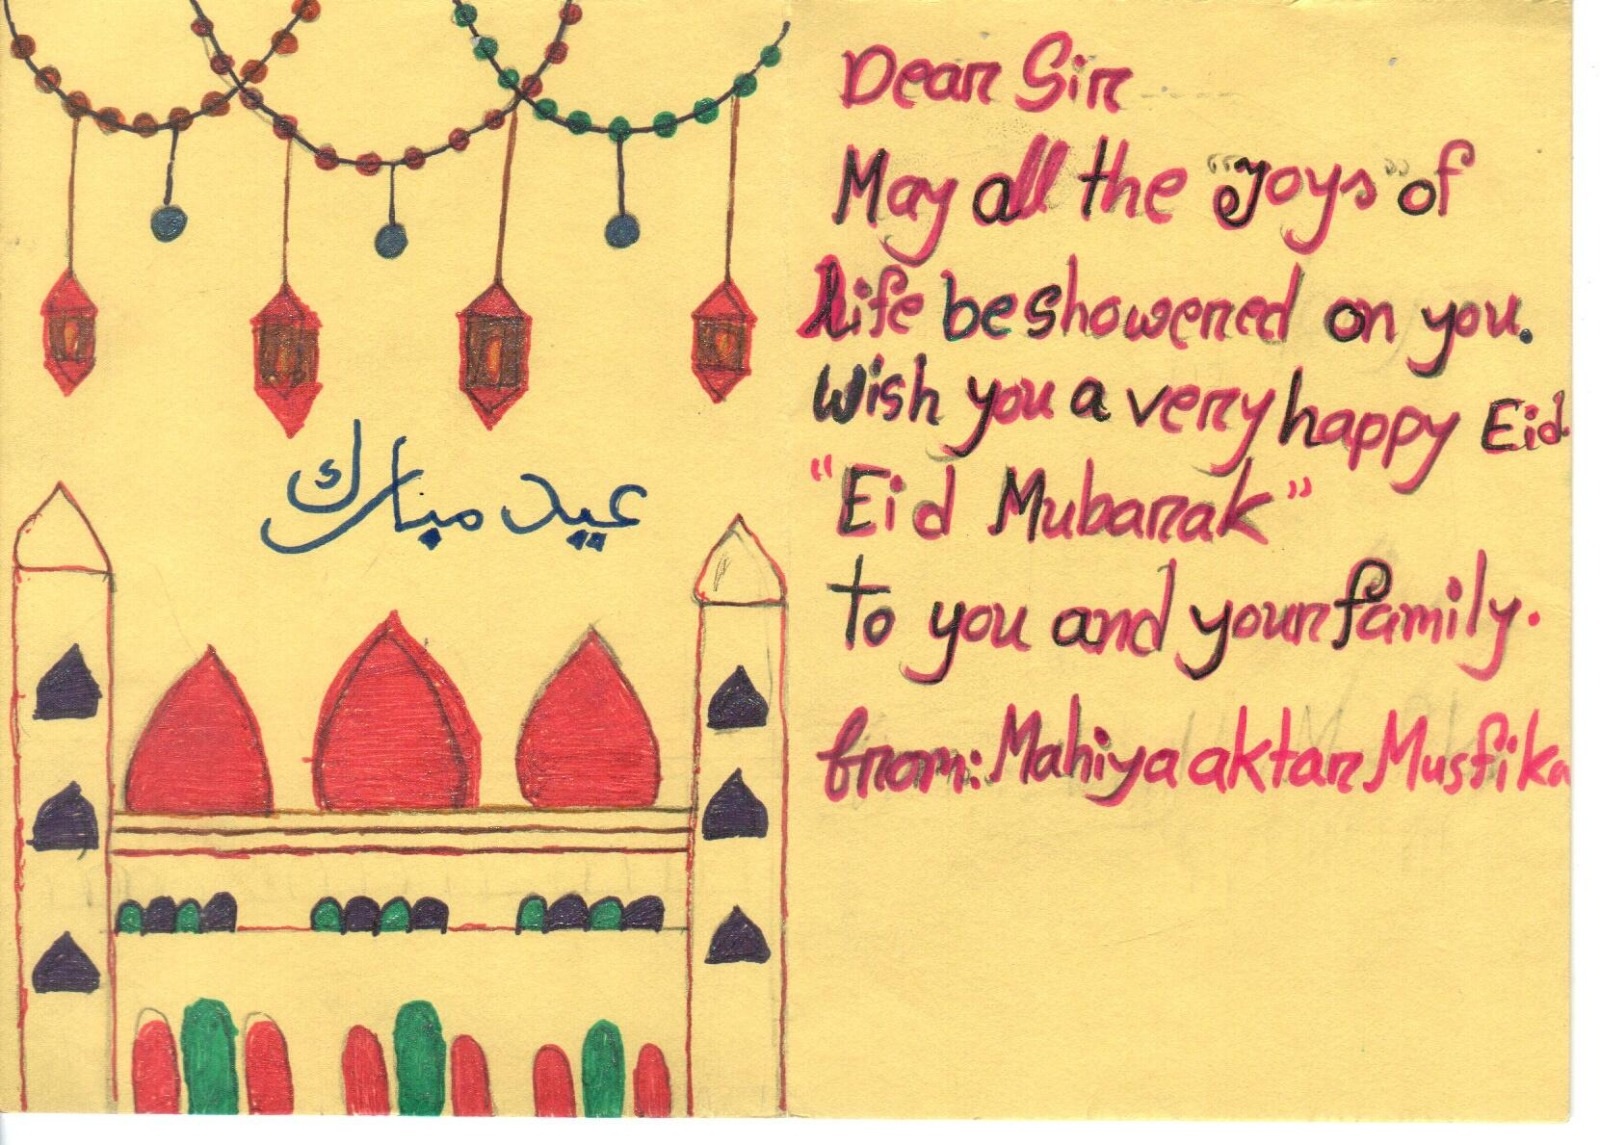 عيد مبارك
Dear Sir
May all the "Joys" of
life be showered on you.
Wish you a very happy Eid.
"Eid Mubarak"
to you and your family.
from: Mahiya aktar Musfika